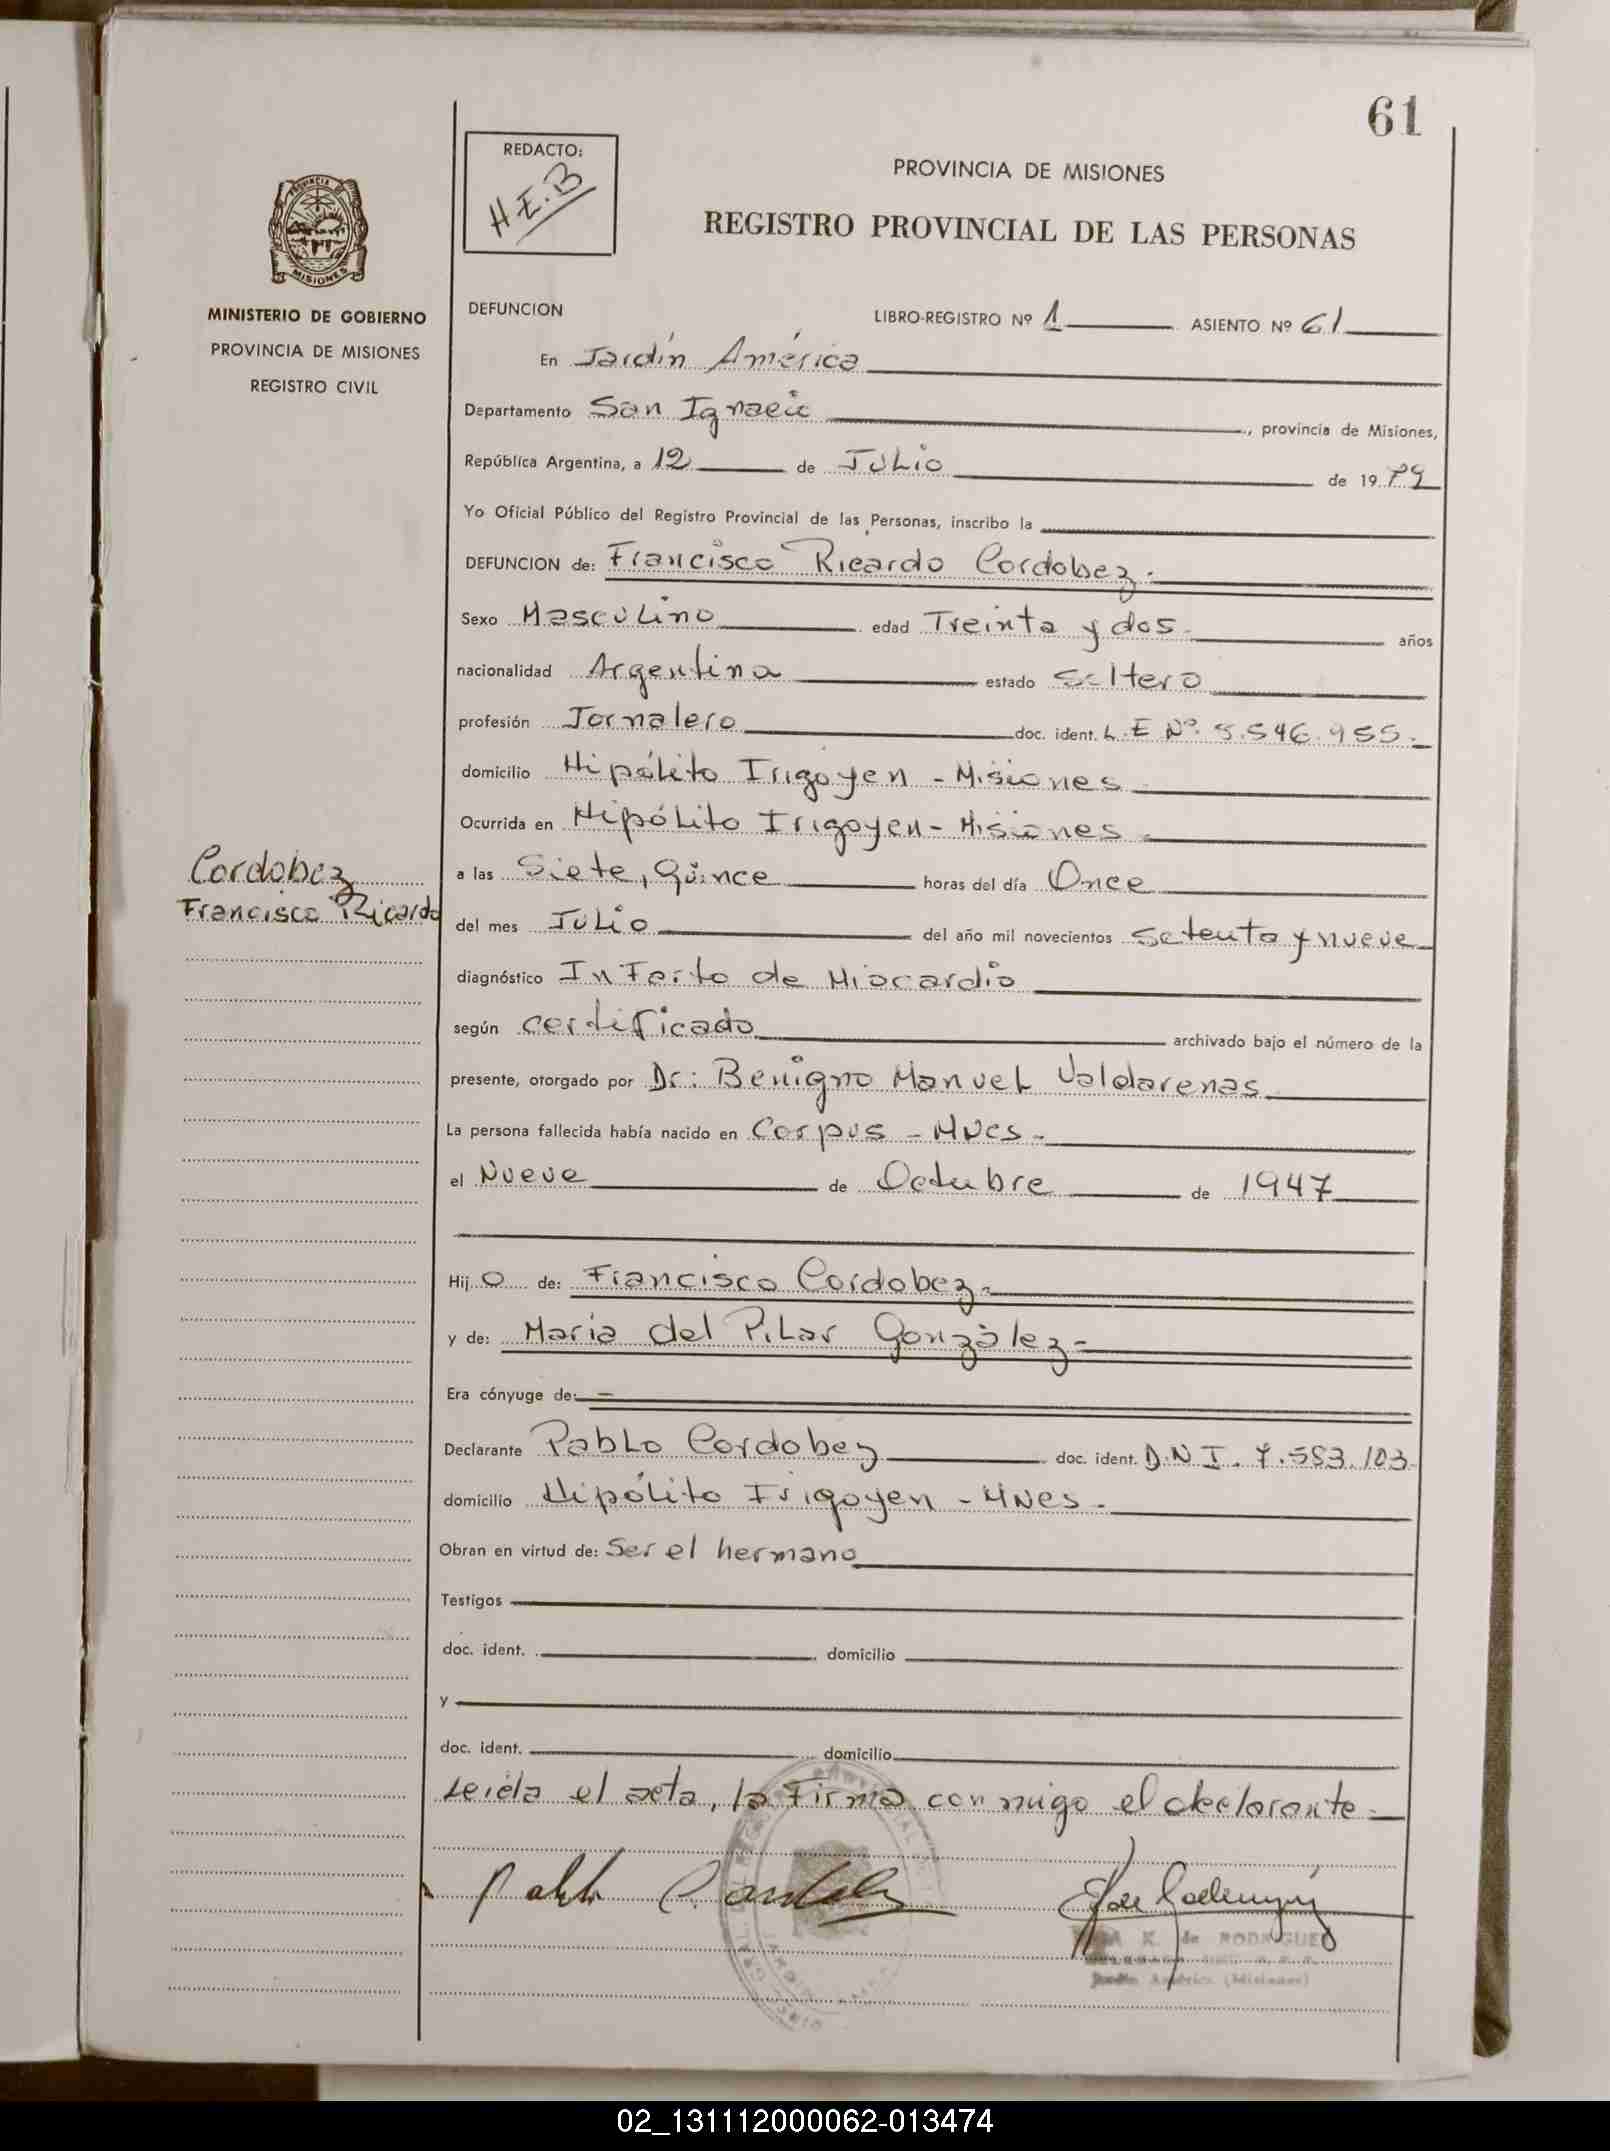 61
REDACTO:
H.E.B
PROVINCIA DE MISIONES
REGISTRO PROVINCIAL DE LAS PERSONAS
PROVINCIA DE
MISIONES
MINISTERIO DE GOBIERNO
PROVINCIA DE MISIONES
REGISTRO CIVIL
DEFUNCION LIBRO-REGISTRO Nº 1 ASIENTO Nº 61
En Jardín América
Departamento San Ignacio, provincia de Misiones,
República Argentina, a 12 de Julio de 1979
Yo Oficial Público del Registro Provincial de las Personas, inscribo la
DEFUNCION de: Francisco Ricardo Cordobez.
Sexo Masculino edad Treinta y dos años
nacionalidad Argentina estado Soltero
profesión Jornalero doc. ident. L.E Nº 5.546.955.
domicilio Hipólito Irigoyen - Misiones
Ocurrida en Hipólito Irigoyen - Misiones
Cordobez
Francisco Ricardo
a las Siete, Quince horas del día Once
del mes Julio del año mil novecientos Setenta y nueve
diagnóstico Infarto de Miocardio
según certificado archivado bajo el número de la
presente, otorgado por Dr: Benigno Manuel Valdarenas
La persona fallecida había nacido en Corpus - Mnes.
el Nueve de Octubre de 1947
Hijo de: Francisco Cordobez.
y de: Maria del Pilar González-
Era cónyuge de: -
Declarante Pablo Cordobez doc. ident. D.N.I. 7.583.103
domicilio Hipólito Irigoyen - Mnes.
Obran en virtud de: Ser el hermano
Testigos
doc. ident. domicilio
y
doc. ident. domicilio
Leida el acta, la Firma conmigo el declarante
Pablo Cordobez
K. de RODRIGUEZ
Jardín América (Misiones)
02_131112000062-013474